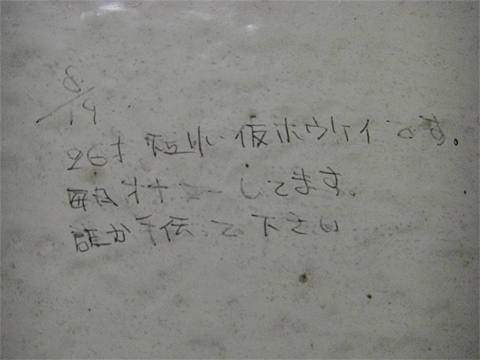 8/19
26才 短小 仮性ホウケイです。
毎日オナニーしてます。
誰か手伝って下さい